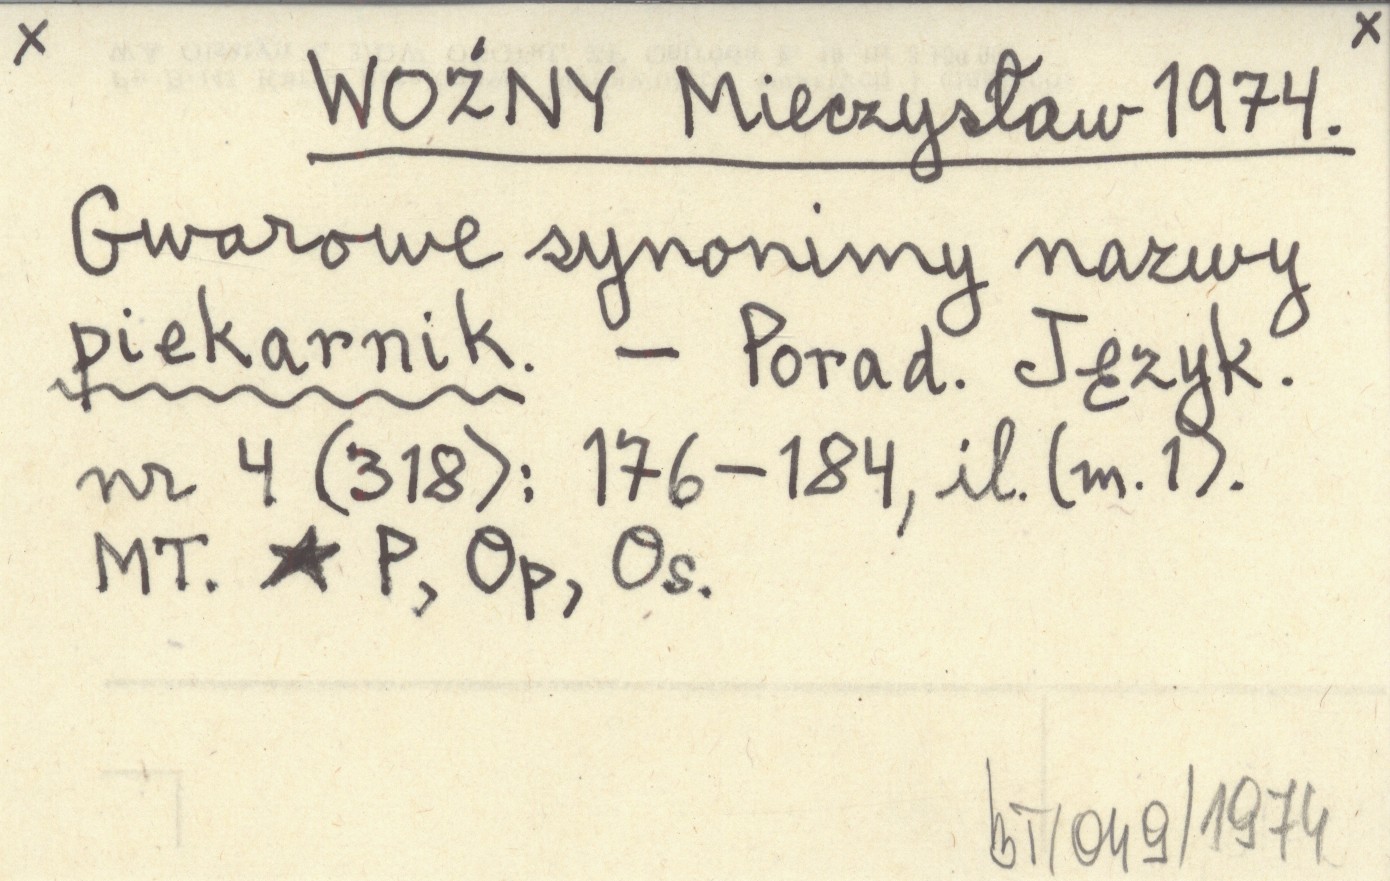 x x
WOŹNY Mieczysław 1974.
Gwarowe synonimy nazwy
piekarnik. — Porad. Język.
nr 4 (318): 176-184, il. (m. 1).
MT. ★ P, Op, Os.
bT/049/1974